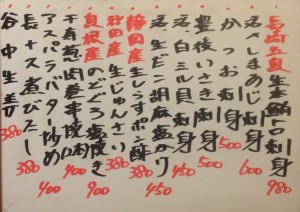 長崎五島生本鮪トロ刺身 980
活〆しまあじ刺身 600
かつお刺身 500
豊後いさき刺身 500
活、白ミル貝刺身 450
活生だこ胡麻塩かり 450
静岡産生しらすポン酢 380
秋田産生じゅんさい 380
島根産のどぐろ塩焼き 900
千寿葱肉巻串焼 400
アスパラバター炒め 400
長ナス煮びたし 380
谷中生姜 380